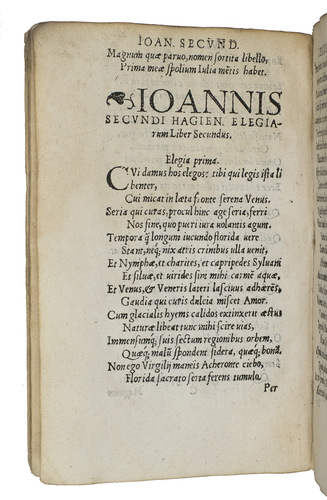 IOAN. SECVND.
Magnum quæ paruo, nomen sortita libello,
Prima meæ spolium Iulia mētis habet.
IOANNIS
SECVNDI HAGIEN. ELEGIA-
rum Liber Secundus.
Elegia prima.
CVi damus hos elegos? tibi qui legis ista li
benter,
Cui micat in læta frōnte serena Venus.
Seria qui curas, procul hinc age seria, ferri
Nos sine, quo pueri iura volantis agunt.
Tempora q̃ longum iucundo florida vere
Stant, neq; nix atris crinibus ulla uenit,
Et Nymphæ, et charites, et capripedes Syluani
Et siluæ, et uirides sint mihi carmē aquæ,
Et Venus, & Veneris lateri lasciuus adhærēs,
Gaudia qui curis dulcia miscet Amor.
Cum glacialis hyems calidos extinxerit æstus
Naturæ libeat tunc mihi scire uias,
Immensumq; suis sectum regionibus orbem,
Quæq; malũ spondent sidera, quæq; bonũ.
Non ego Virgilij maneis Acheronte ciebo,
Florida sacrato serta ferens tumulo.
Per